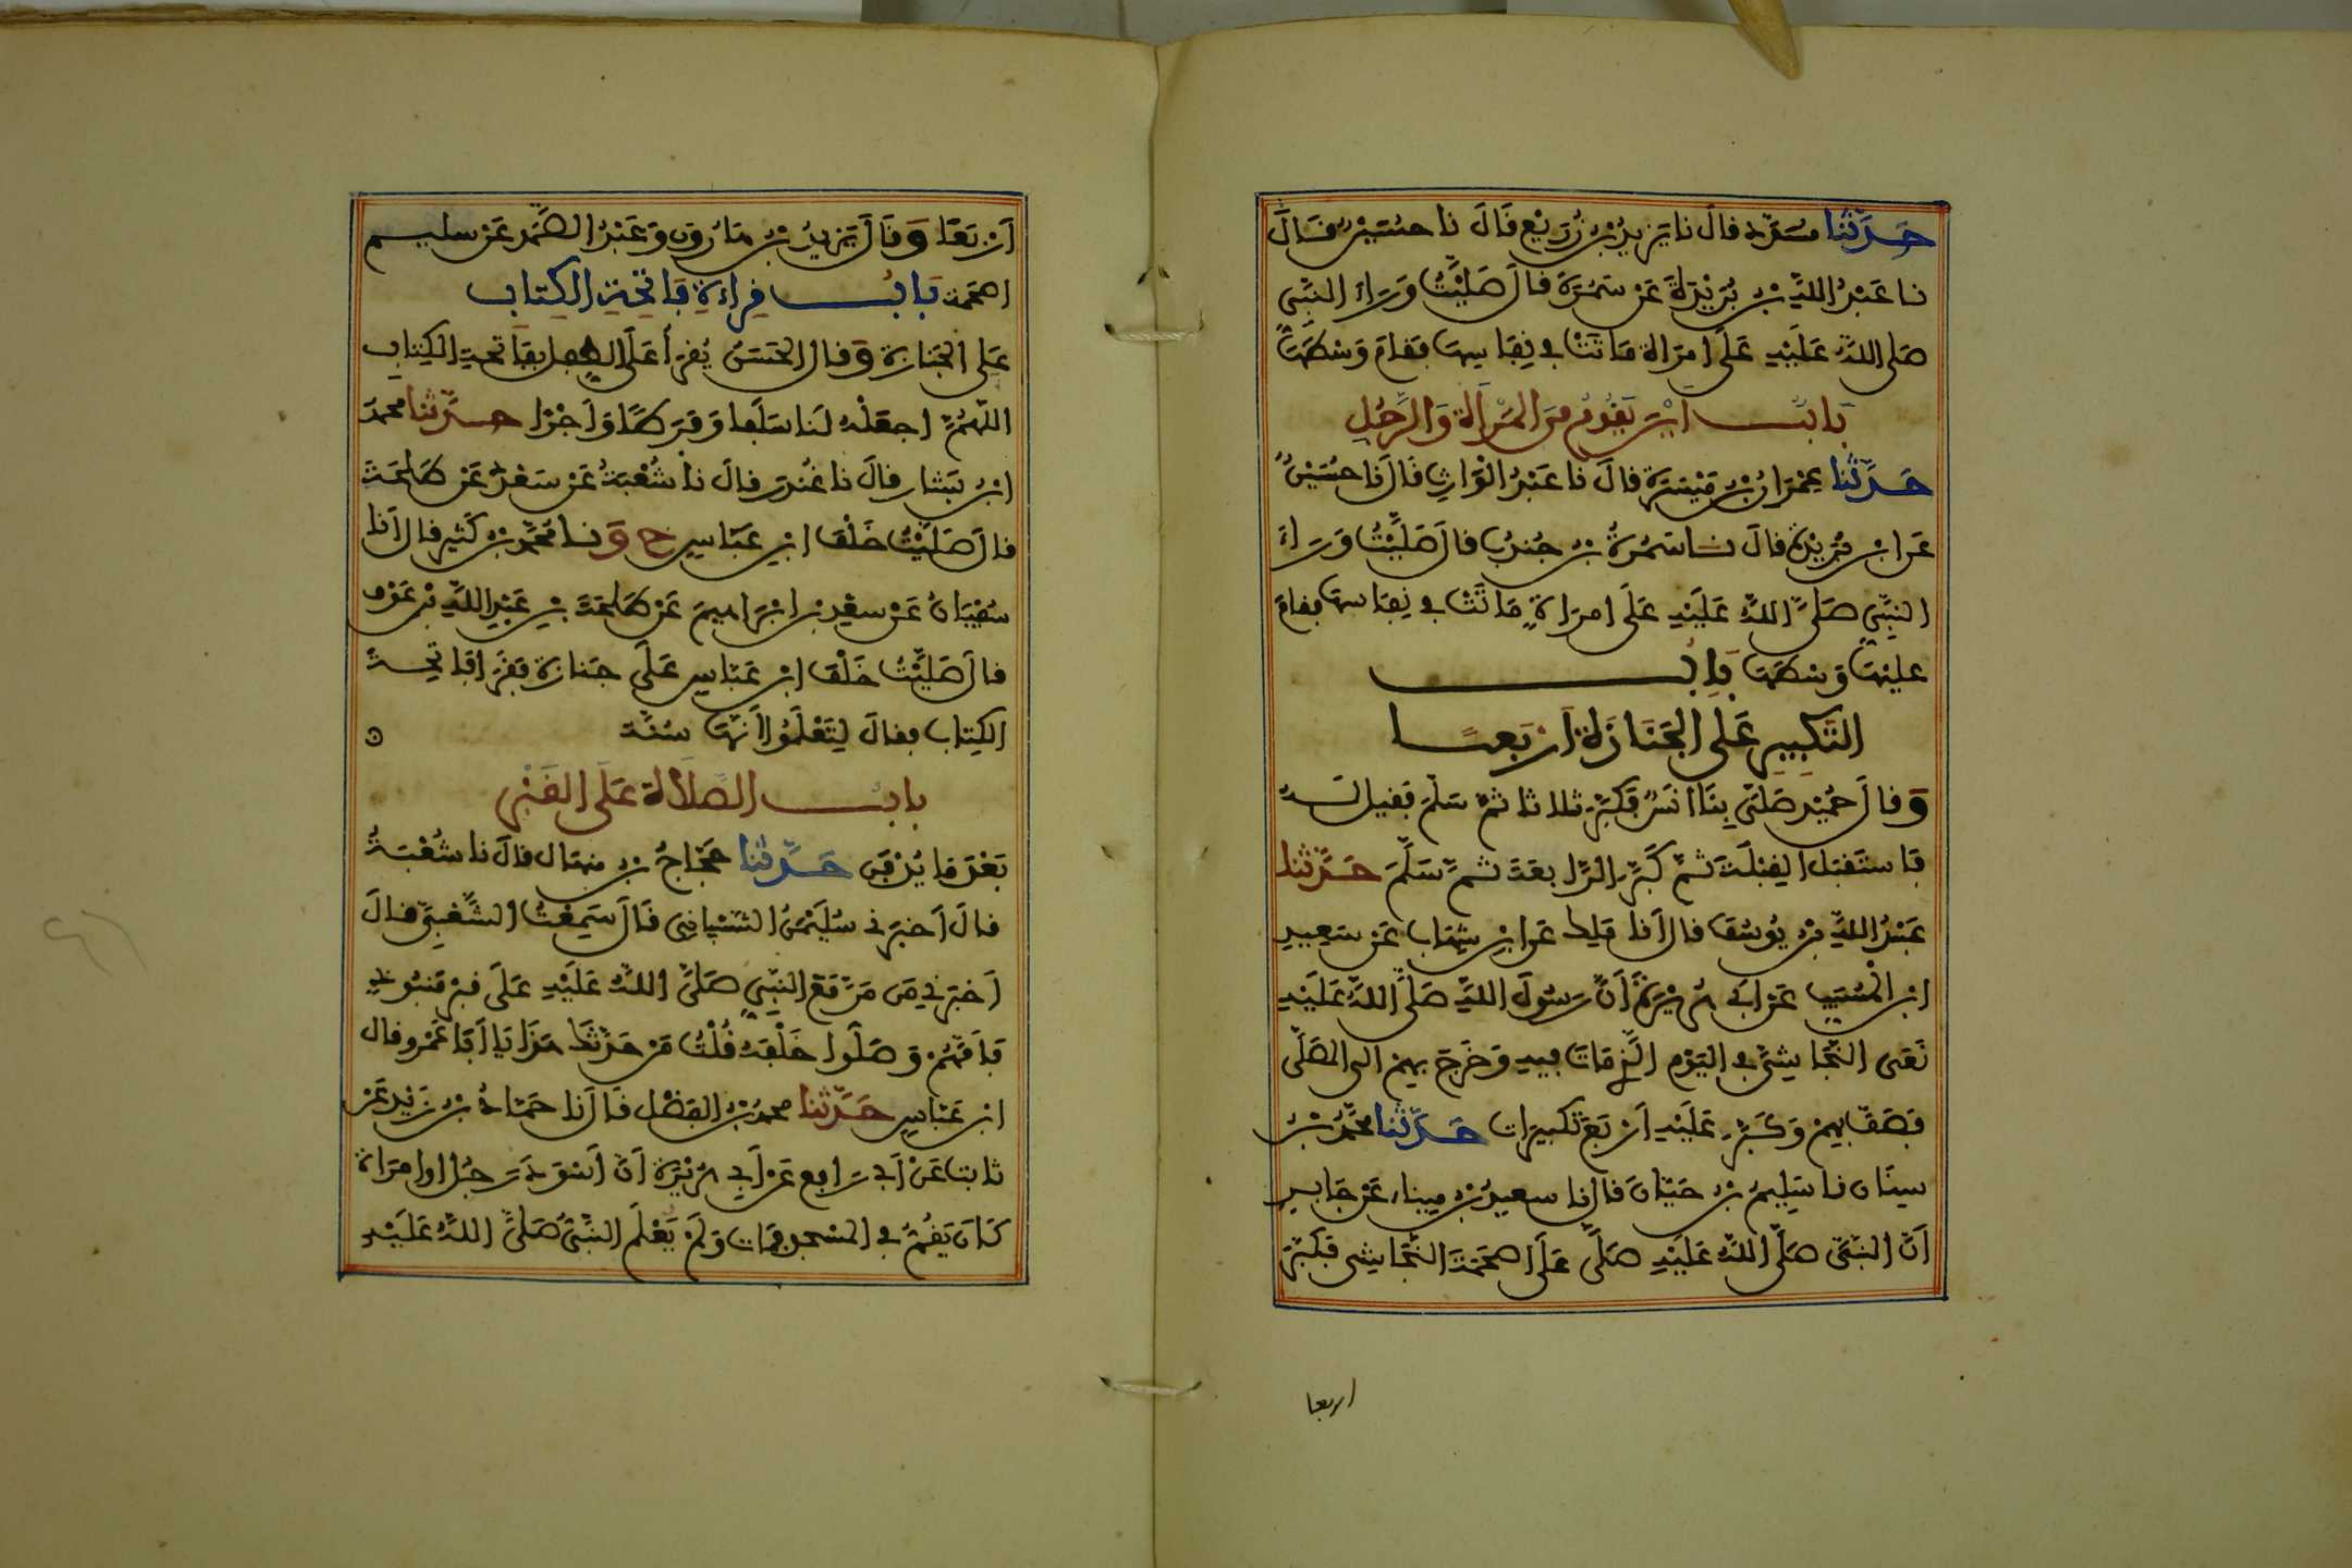 حَدَّثَنَا مسَدَّد قالَ نا يَزِيدُ بْنُ زُرَيْعٍ قَالَ نا حُسَيْنٌ قَالَ
نا عَبْدُ اللَّهِ بْنُ بُرَيْدَةَ عَنْ سَمُرَةَ قالَ صَلَّيْتُ وَرَاءَ النَّبِيِّ
صَلى اللَّهُ عَلَيْهِ عَلَى امرَأة مَاتَتْ فِي نِفَاسِهَا فَقَامَ وَسْطَهَا
بَابُ أَيْنَ يَقُومُ مِنَ المَرْأَةِ وَالرَّجُلِ
حَدَّثَنَا عِمْرَانُ بْنُ مَيْسَرَةَ قالَ نا عَبْدُ الْوَارِثِ قَالَ نَا حُسَيْنٌ
عَن ابْنِ بُرَيْدَةَ قالَ نا سَمُرَةُ بْنُ جُندُبٍ قالَ صَلَّيْتُ وَرَاءَ
النَّبِيِّ صَلَّى اللَّهُ عَلَيْهِ عَلَى امرَأةٍ مَاتَتْ فِي نِفَاسها فقامَ
عليْهَا وَسْطَهَا بَابُ
التَّكْبِيرِ عَلَى الجَنَازَةِ أَرْبَعًا
وَقالَ حُمَيْد صَلَّى بِنَا أَنَسٌ فَكَبَّرَ ثلاثا ثمَّ سَلَّمَ فَقيلَ لَهُ
فَاسْتَقبَلَ القِبْلَةَ ثُمَّ كَبَّرَ الرَّابعَةَ ثُمَّ سَلَّمَ حَدَّثَنَا
عَبْدُ اللَّهِ بْنُ يُوسُفَ قالَ أَنَا مَلِك عَن ابْنِ شِهَابٍ عَنْ سَعِيدِ
ابْنِ الْمُسَيَّبِ عَنْ أَبِي هُرَيْرَةَ أَنَّ رَسُولَ اللَّهِ صَلَّى اللَّهُ عَلَيْهِ
نَعَى النَّجَاشِيَّ فِي اليَوْمِ الَّذِي مَاتَ فِيهِ وَخَرَجَ بِهِمْ الى المصَلَّى
فَصَفَّ بِهِمْ وَكَبَّرَ عَلَيْهِ أَرْبَعَ تَكْبِيرَات حَدَّثَنَا مُحَمَّدُ بْنُ
سِنَانٍ نا سَلِيمُ بْنُ حَيَّانَ قالَ نا سعيدُ بْنُ مِينَاء عَنْ جَابِرٍ
أَنَّ النَّبِيَّ صَلَّى اللَّهُ عَلَيْهِ صَلَّى عَلَى أَصْحَمَةَ النَّجَاشِي فَكَبَّرَ
اربعا
أَرْبَعًا وَقَالَ يَزِيدُ بْنُ هَارُونَ وَعَبْدُ الصَّمَدِ عَنْ سليم
أصْحَمَة بَابُ قِرَاءَةِ فَاتِحَةِ الكِتَابِ
عَلى الجَنَازَةِ وَقالَ الحَسَنُ يُقْرَأُ عَلَى الطِّفْلِ بِفَاتِحَةِ الْكِتَابِ
اللَّهُمَّ اجعَلْهُ لَنَا سَلَفا وَفَرَطًا وَأَجْرًا حَدَّثَنَا محمدُ
ابْنُ بَشَّارٍ قالَ نا غُنْدَر قالَ نا شُعْبَةُ عَنْ سَعْدٍ عَنْ طَلْحَةَ
قالَ صَلَّيْتُ خَلْفَ ابْنِ عَبَّاسٍ ح وَنا مُحَمَّدُ بْنُ كَثِيرٍ قالَ أَنا
سُفْيَانُ عَنْ سعْدِ بْنِ إِبْرَاهِيمَ عَنْ طَلْحَةَ بْنِ عَبْدِ اللَّهِ بْنِ عَوْفٍ
قالَ صَلَّيْتُ خَلْفَ ابْنِ عَبَّاسٍ عَلَى جَنازَةٍ فَقَرَأَ فَاتِحَةَ
الكِتَابِ فقالَ لِتَعْلَمُوا أَنَّهَا سُنَّة
بابُ الصَّلَاةِ عَلَى القَبْرِ
بَعْدَ مَا يُدْفَنُ حَدَّثَنَا حَجَّاجُ بْنُ مِنهَالٍ قالَ نا شُعْبَةُ
قالَ أَخبَرَنِي سُلَيْمَنُ الشَّيْبَانِي قَالَ سَمِعْتُ الشَّعْبِيَّ قالَ
أَخْبَرَنِي مَن مَرَّ مَعَ النَّبِيِّ صَلَّى اللَّهُ عَلَيْهِ عَلَى قبْرٍ مَنْبُوذٍ
فَأَمَّهُمْ وَصَلَّوا خَلْفَهُ قُلْتُ مَنْ حَدَّثَكَ هَذَا يَا أَبَا عَمْرو قال
ابْن عَبَّاسٍ حَدَّثَنَا محمدُ بْنُ الفَضْلِ قالَ نا حَمَّادُ بْنُ زَيْدٍ عَنْ
ثابت عَنْ أَبِي رَافِع عَنْ أَبِي هُرَيْرَةَ أَنَّ أَسْوَدَ رَجُل أَوِ امْرَأَة
كَانَ يَقُمُّ فِي المَسْجِدِ فَمَاتَ وَلَمْ يَعْلَمِ النَّبِيُّ صَلَّى اللَّهُ عَلَيْهِ